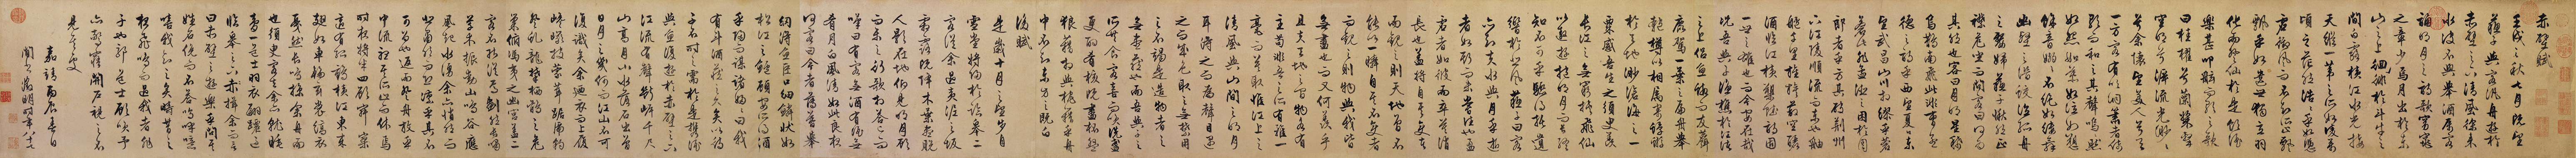 赤壁賦
壬戌之秋七月既望
蘇子與客汎舟遊於
赤壁之下清風徐來
水波不興舉酒屬客
誦明月之詩歌窈窕
之章少焉月出於東
山之上徘徊於斗牛之
間白露橫江水光接
天縱一葦之所如凌萬
頃之茫然浩浩乎如馮
虛御風而不知其所止飄
飄乎如遺世獨立羽
化而登仙於是飲酒
樂甚扣舷而歌之歌
曰桂櫂兮蘭槳擊
空明兮泝流光渺渺
兮余懷望美人兮天
一方客有吹洞簫者倚
歌而和之其聲嗚嗚然
如怨如慕如泣如訴
餘音嫋嫋不絕如縷舞
幽壑之潛蛟泣孤舟
之嫠婦蘇子愀然正
襟危坐而問客曰何為
其然也客曰月明星稀
烏鵲南飛此非孟
德之詩乎西望夏口東
望武昌山川相繆鬱乎蒼
蒼此非孟德之困於周
郎者乎方其破荊州
下江陵順流而東也舳
艫千里旌旗蔽空釃
酒臨江橫槊賦詩固
一世之雄也而今安在哉
況吾與子漁樵於江渚
之上侶魚蝦而友麋
鹿駕一葉之扁舟舉
匏樽以相屬寄蜉蝣
於天地渺滄海之一
粟哀吾生之須臾羨
長江之無窮挾飛仙
以遨遊抱明月而長終
知不可乎驟得託遺
響於悲風蘇子曰客
亦知夫水與月乎逝
者如斯而未嘗往也盈
虛者如彼而卒莫消
長也蓋將自其變者
而觀之則天地曾不
能以一瞬自其不變者
而觀之則物與我皆
無盡也而又何羨乎
且夫天地之間物各有
主苟非吾之所有雖一
毫而莫取惟江上之
清風與山間之明月
耳得之而為聲目遇
之而成色取之無禁用
之不竭是造物者之
無盡藏也而吾與子之
所共食客喜而笑洗盞
更酌肴核既盡杯盤
狼藉相與枕藉乎舟
中不知東方之既白
後賦
是歲十月之望步自
雪堂將歸於臨皋二
客從余過黃泥之坂
霜露既降木葉盡脫
人影在地仰見明月顧
而樂之行歌相答已而
嘆曰有客無酒有酒無
肴月白風清如此良夜
何客曰今者薄暮舉
網得魚巨口細鱗狀如
松江之鱸顧安所得酒
乎歸而謀諸婦婦曰我
有斗酒藏之久矣以待
子不時之需於是攜酒
與魚復遊於赤壁之下
江流有聲斷岸千尺
山高月小水落石出曾
日月之幾何而江山不可
復識矣余乃攝衣而上履
巉巖披蒙茸踞虎豹
登虬龍攀棲鶻之危
巢俯馮夷之幽宮蓋二
客不能從焉劃然長嘯
草木振動山鳴谷應
風起水涌余亦悄然而
悲肅然而恐凜乎其不
可留也返而登舟放乎
中流聽其所止而休焉
時夜將半四顧寂寥
適有孤鶴橫江東來
翅如車輪玄裳縞衣
戛然長鳴掠余舟而
西也須臾客去余亦就睡
夢一道士羽衣蹁躚過
臨皋之下揖余而言
曰赤壁之遊樂乎問其
姓名俛而不答嗚呼噫
嘻我知之矣疇昔之
夜飛鳴而過我者非
子也耶道士顧笑予
亦驚寤開戶視之不
見其處